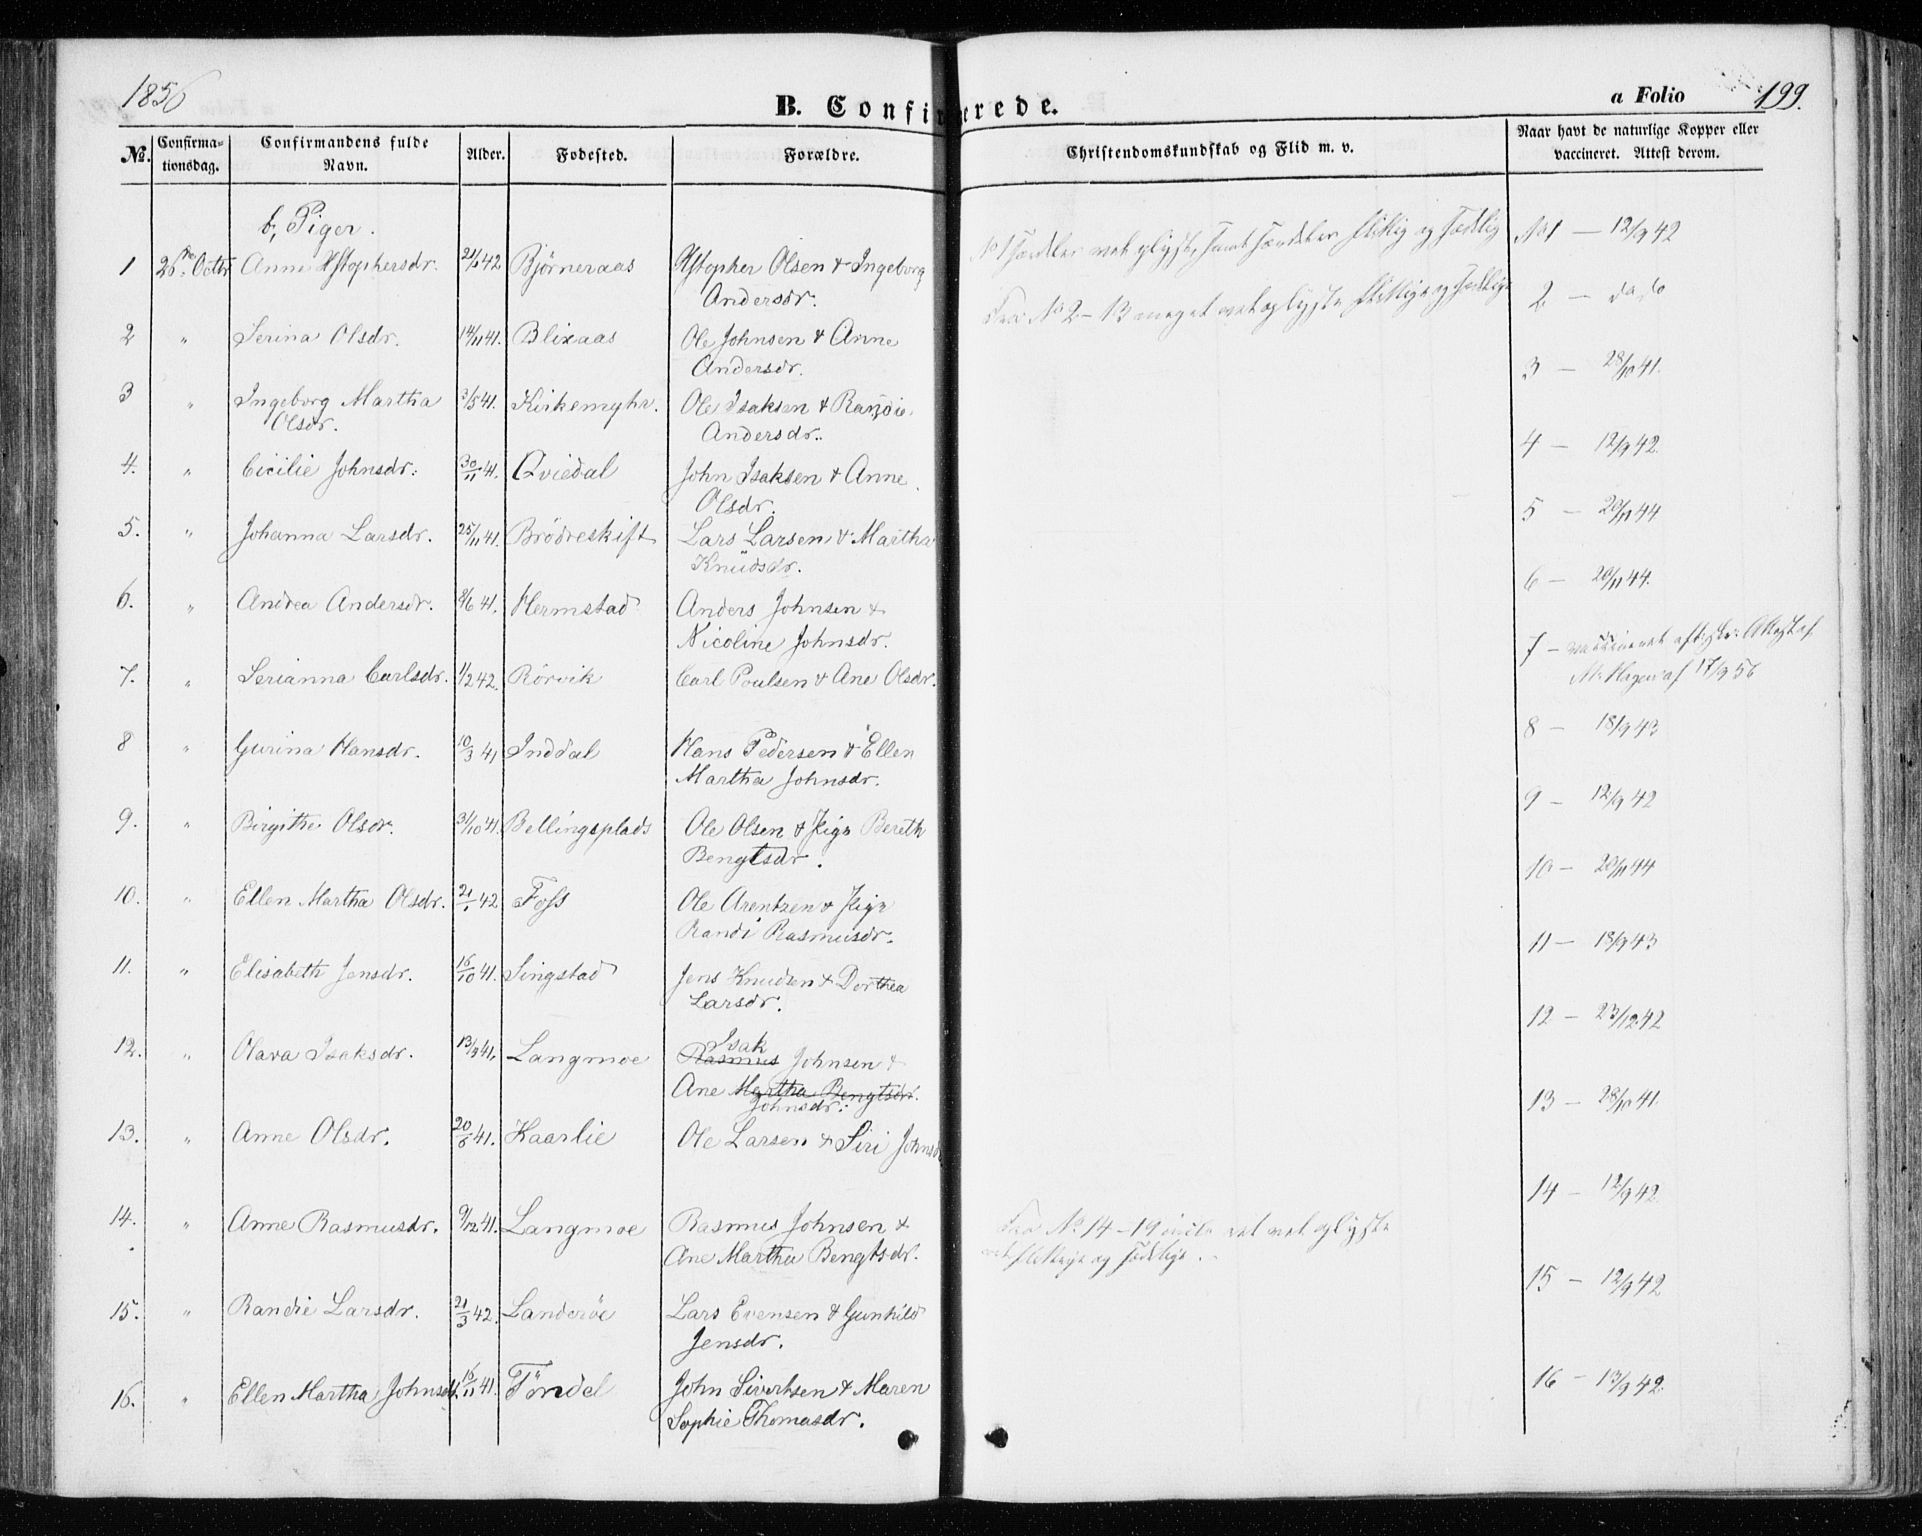 1856
B. Confirmerede.
a Folio
199.
No.
Confirmationsdag.
Confirmandens fulde Navn.
Alder.
Fødested.
Forældre.
Christendomskundskab og Flid m. v.
Naar havt de naturlige Kopper eller vaccineret. Attest derom.
b, Piger.
1 26de Octbr Anne Xstophersdr. 21/1 42 Bjørneraas Xstopher Olsen & Ingeborg
Andersdr.
No 1 - 12/9 42
2 " Serina Olsdr. 14/11 41. Blixaas Ole Johnsen & Anne
Andersdr.
Fra No 2 - 13 meget
2 - do do
3 " Ingeborg Martha 3/5 41. Kirkemyhr. Ole Isaksen &
Olsdr. Andersdr.
3 - 28/10 41.
4. " Cicilie Johnsdr. 30/11 41. Qviedal John Isaksen & Anne
Olsdr.
4 - 12/9 42.
5. " Johanna Larsdr. 25/11 41. Brödreskift Lars Larsen & Martha
Knüdsdr.
5 - 20/11 44
6. " Andrea Andersdr. 8/6 41. Hermstad Anders Johnsen &
Nicoline Johnsdr.
6 - 20/11 44.
7. " Serianna Carlsdr. 1/2 42. Rörvik Carl Poulsen & Ane Olsdr.
7 - vaccineret
17/9 56
8 " Gurina Hansdr. 10/3 41 Inddal Hans Pedersen & Ellen
Martha Johnsdr.
8 - 18/9 43
9. " Birgithe Olsdr. 31/10 41. Bellingsplads Ole Olsen & Pige Bereth
Bengtsdr.
9 - 12/9 42
10. " Ellen Martha Olsdr. 21/1 42 Foss Ole Arentzen & Pige
Randi Rasmusdr.
10 - 20/11 44
11. " Elisabeth Jensdr. 16/10 41. Singstad Jens Knudsen & Dorthea
Larsdr.
11 - 18/9 43
12. " Olava Isaksdr. 13/9 41. Langmoe Isak
Rasmus Johnsen &
Ane Martha Bengtsdr.
Johnsdr.
12 - 23/12 42
13. " Anne Olsdr. 20/6 41. Kaarlie Ole Larsen & Siri Johnsd
13 - 28/10 41.
14. " Anne Rasmusdr. 9/12 41. Langmoe Rasmus Johnsen &
Ane Martha Bengtsdr.
Fra No 14 - 19
og
14 - 12/9 42.
15. " Randie Larsdr. 21/3 42. Landeröe Lars Evensen & Gunhild
Jensdr.
15 - 12/9 42
16. " Ellen Martha Johnsdr. 16/11 41. Töndel John Sivertsen & Maren
Sophie Thomasdr.
16 - 13/9 42.